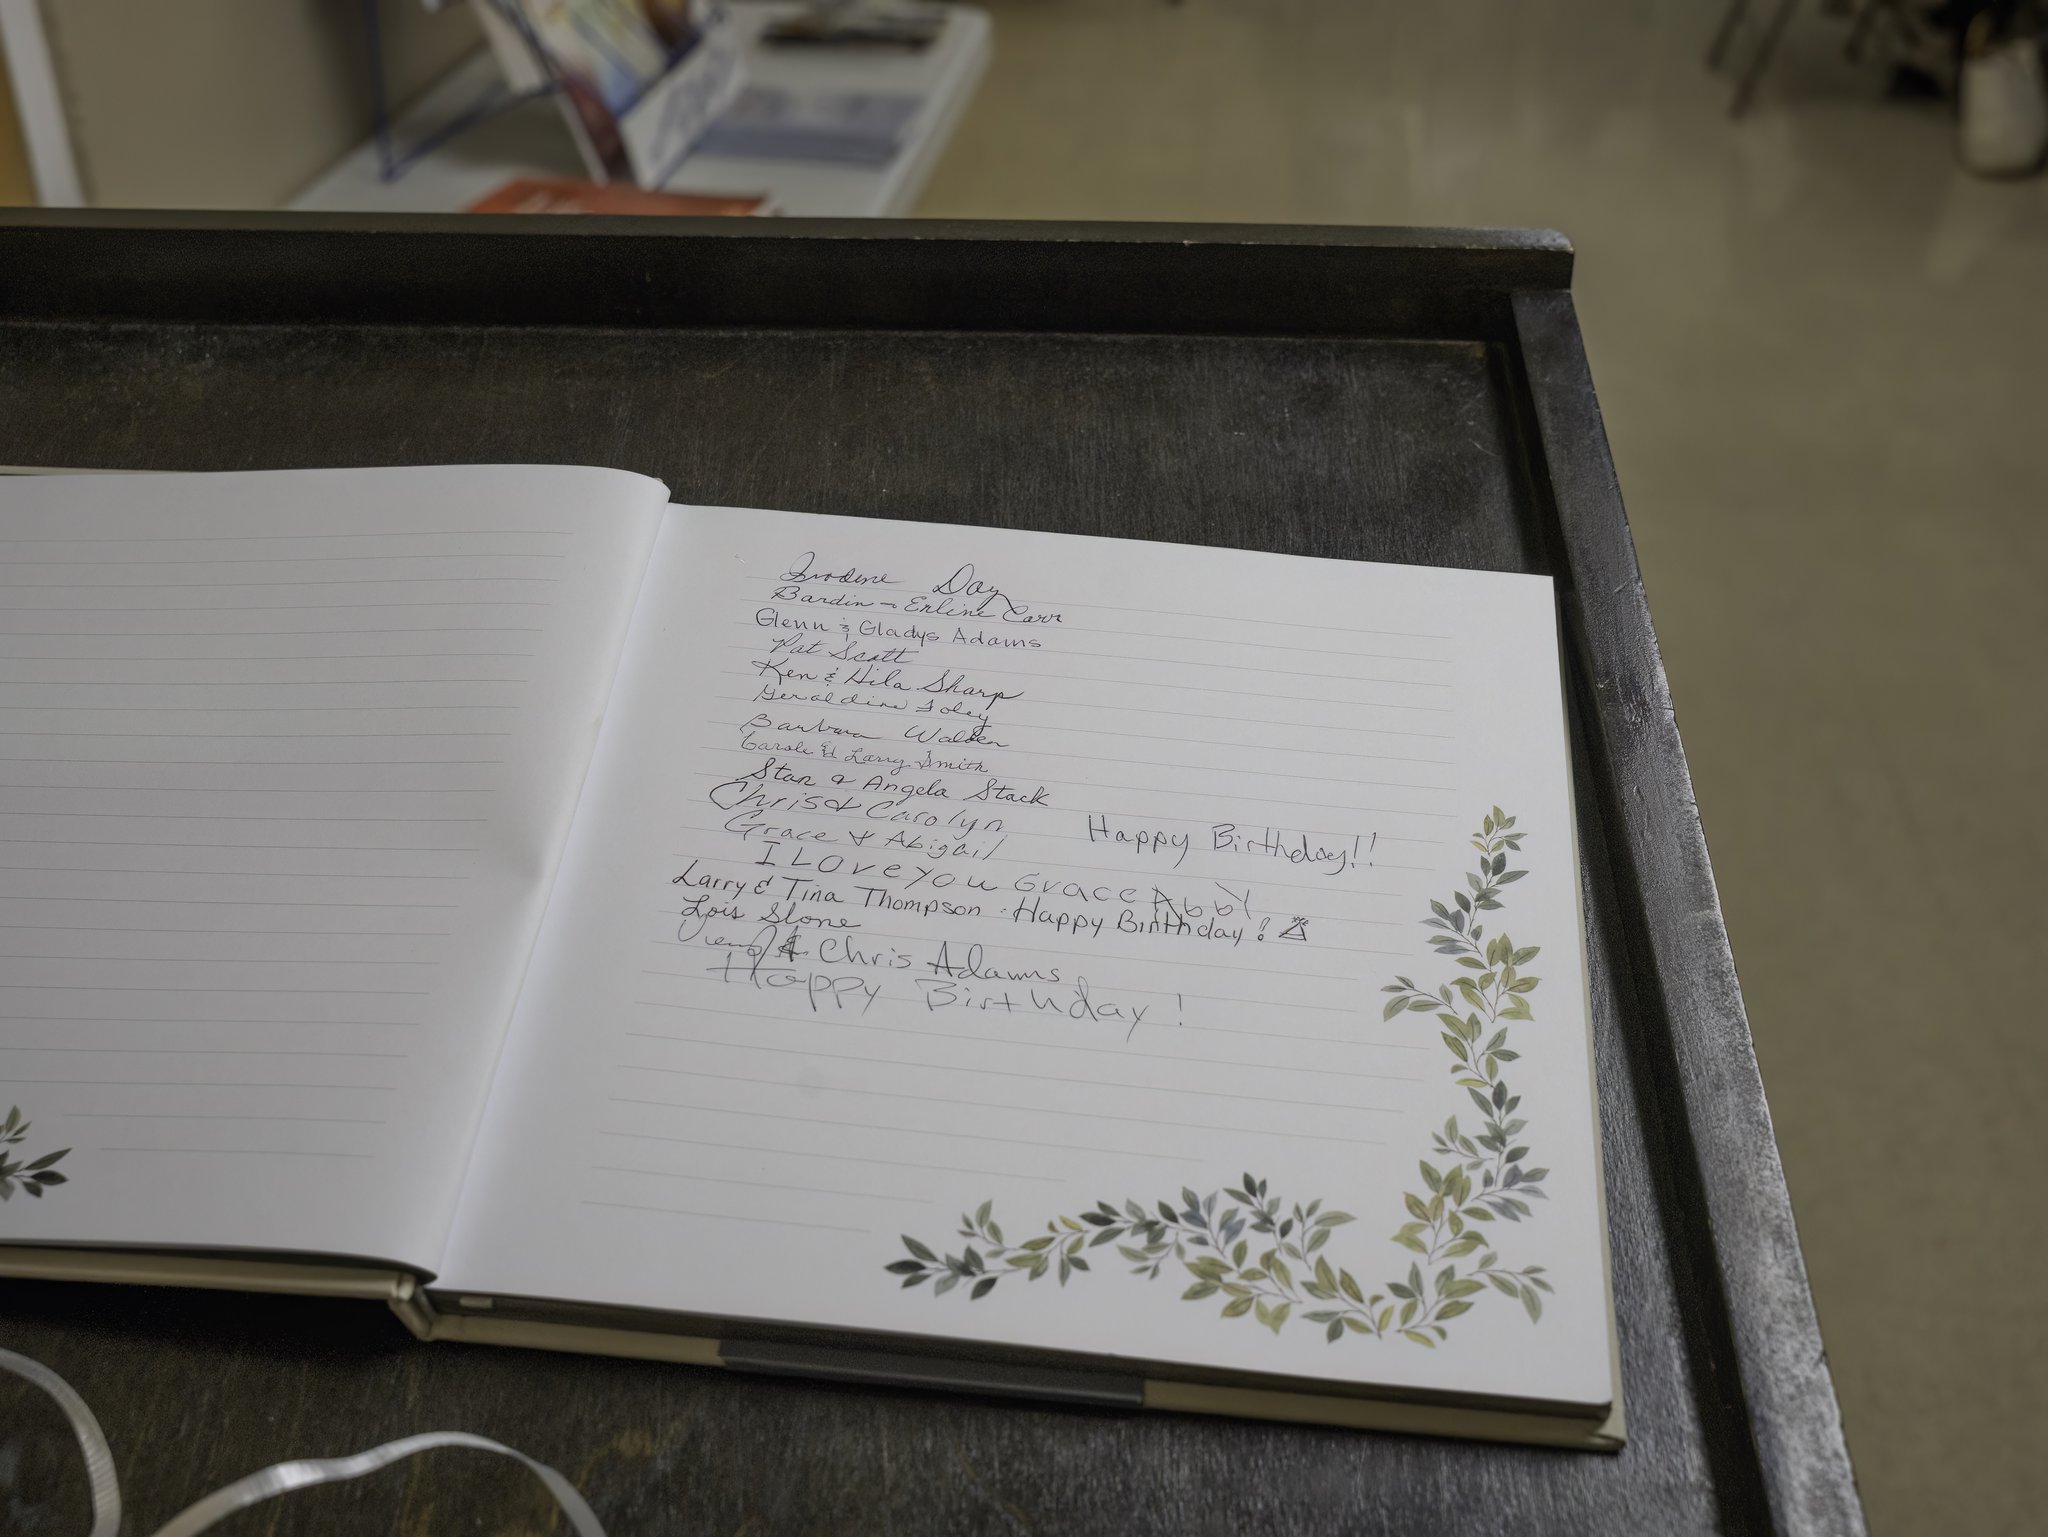 Day
Bardin Erline Carr
Glenn & Gladys Adams
Pat Scott
Ken & Hila Sharp
Geraldine Foley
Barbara Walden
Carole & Larry Smith
Stan & Angela Stack
Chris & Carolyn
Grace & Abigail Happy Birthday!!
I LOVE you Grace Abby
Larry & Tina Thompson Happy Birthday!
Lois Slone
& Chris Adams
Happy Birthday!